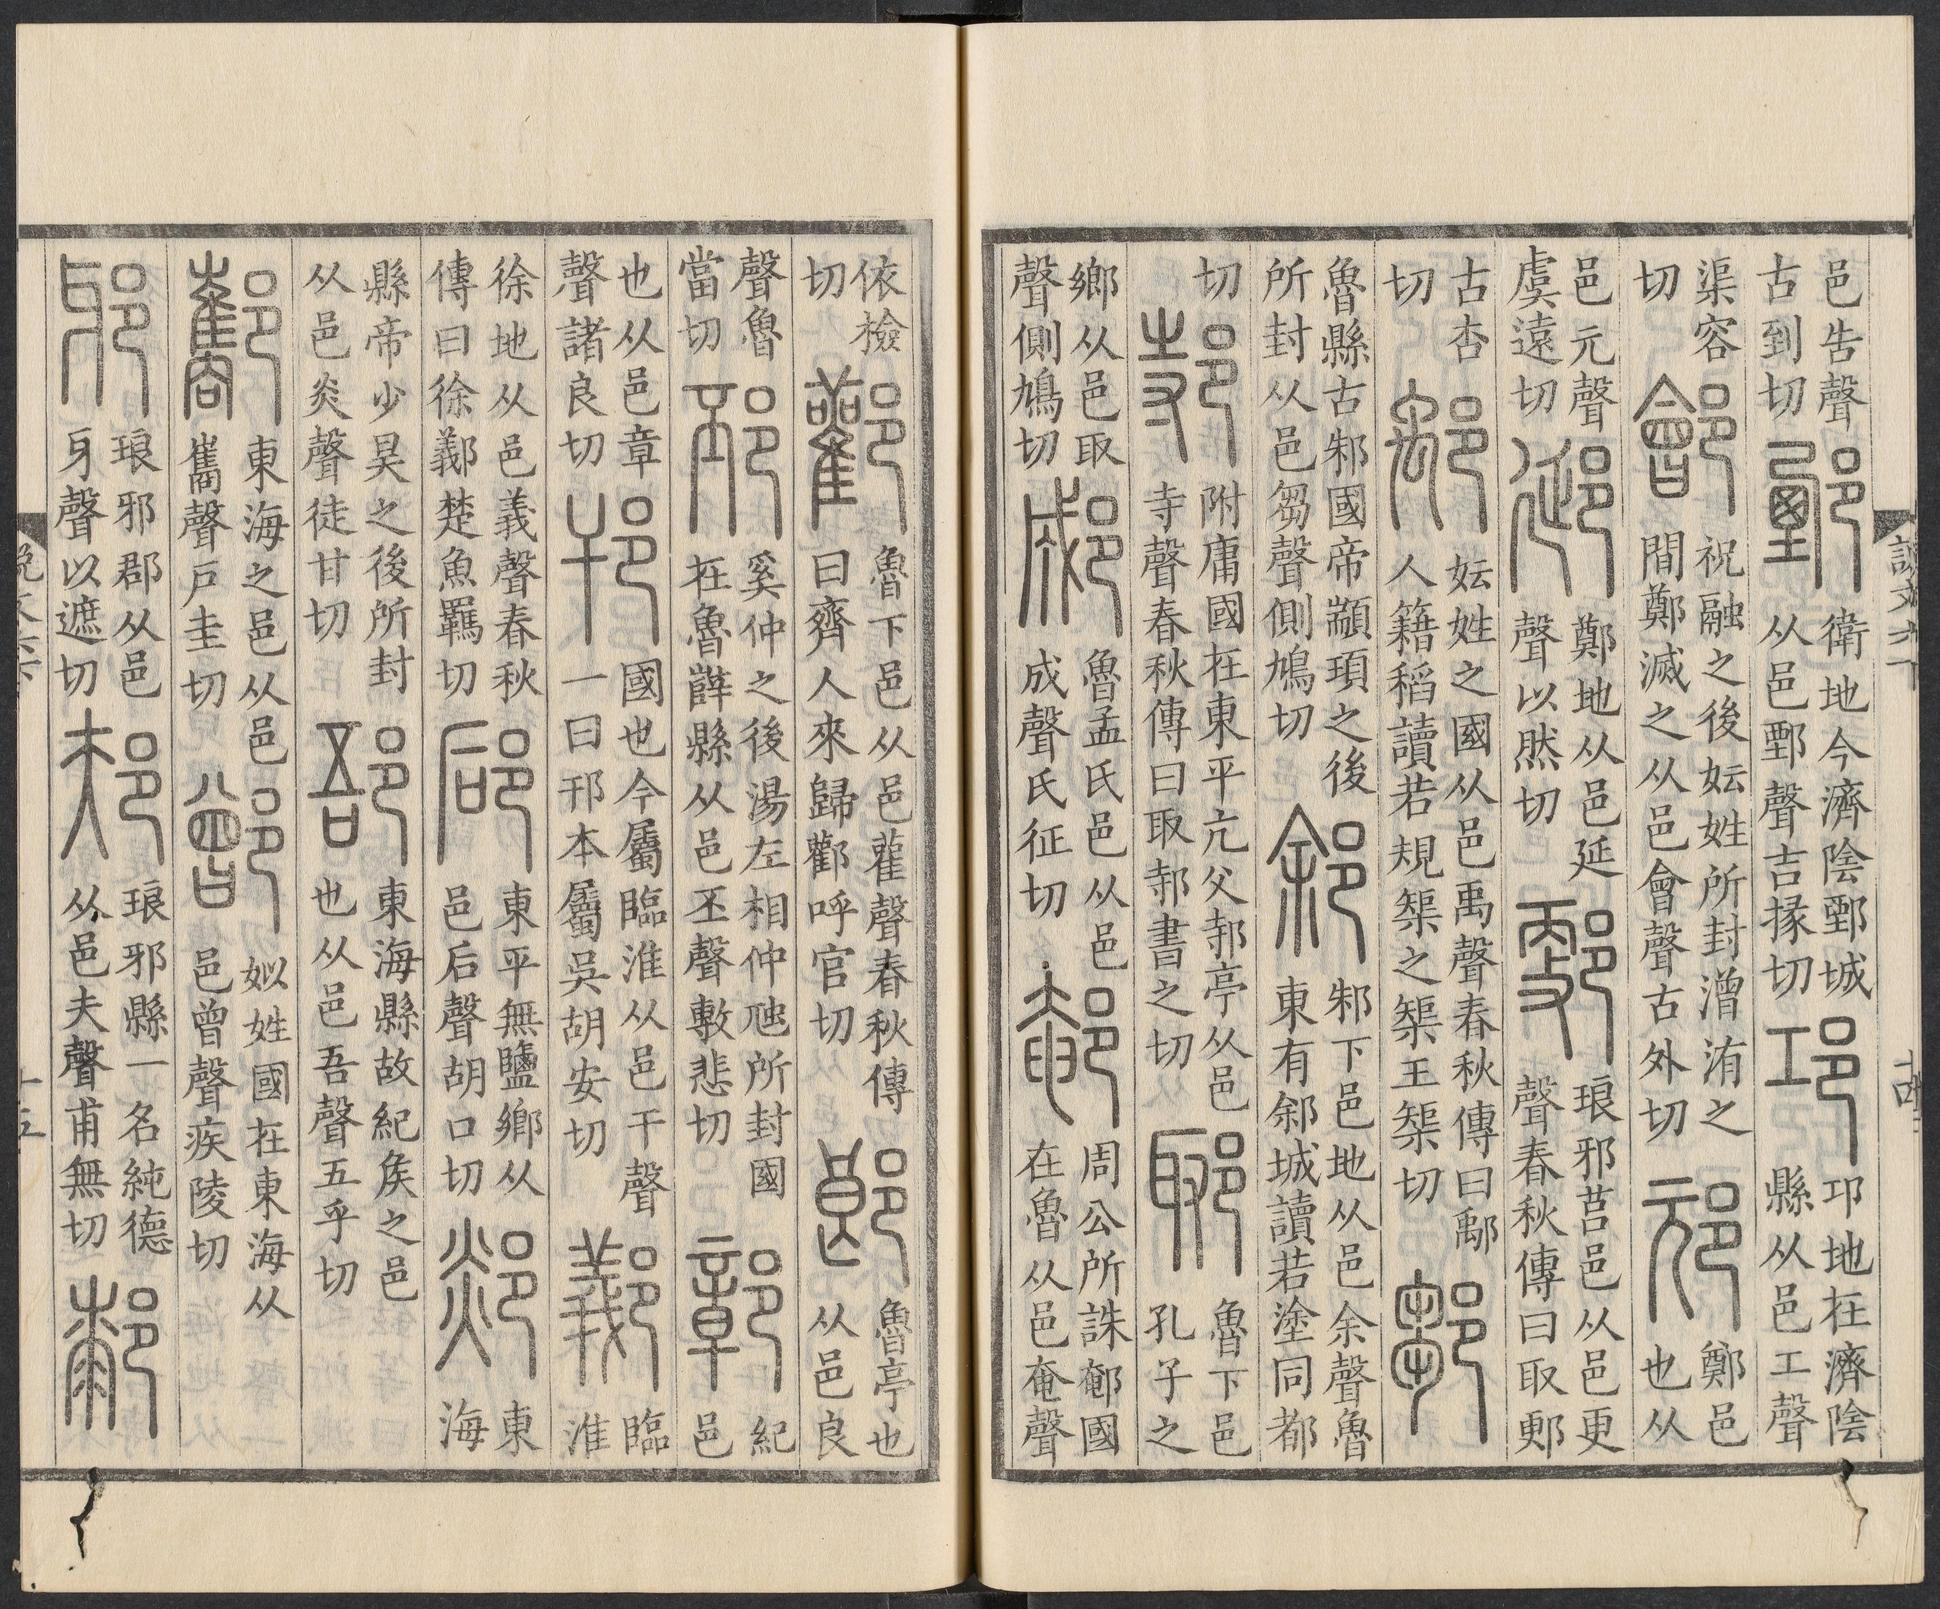 說文六下
十四
邑告聲古到切鄄衛地今濟陰鄄城从邑鄄聲吉掾切邛邛地在濟陰縣从邑工聲
渠容切鄶祝融之後妘姓所封潧洧之間鄭滅之从邑會聲古外切邧鄭邑也从
邑元聲虞遠切郔鄭地从邑延聲以然切郠琅邪莒邑从邑更聲春秋傳曰取郠
古杏切鄅妘姓之國从邑禹聲春秋傳曰鄅人籍稻讀若規榘之榘王榘切鄒
魯縣古邾國帝顓頊之後所封从邑芻聲側鳩切䣄邾下邑地从邑余聲魯東有䣄城讀若塗同都
切邿附庸國在東平亢父邿亭从邑寺聲春秋傳曰取邿書之切郰魯下邑孔子之
鄉从邑取聲側鳩切郕魯孟氏邑从邑成聲氏征切郺周公所誅郺國在魯从邑奄聲
依檢切酄魯下邑从邑雚聲春秋傳曰齊人來歸酄呼官切郎魯亭也从邑良
聲魯當切邳奚仲之後湯左相仲虺所封國在魯薛縣从邑丕聲敷悲切鄣紀邑
也从邑章聲諸良切邗國也今屬臨淮从邑干聲一曰邗本屬吳胡安切䣡臨淮
徐地从邑義聲春秋傳曰徐䣡楚魚羈切郈東平無鹽鄉从邑后聲胡口切郯東海
縣帝少昊之後所封从邑炎聲徒甘切郚東海縣故紀侯之邑也从邑吾聲五乎切
酅東海之邑从邑巂聲戶圭切鄫姒姓國在東海从邑曾聲疾陵切
邪琅邪郡从邑牙聲以遮切邞琅邪縣一名純德从邑夫聲甫無切䣛
說文六
十五